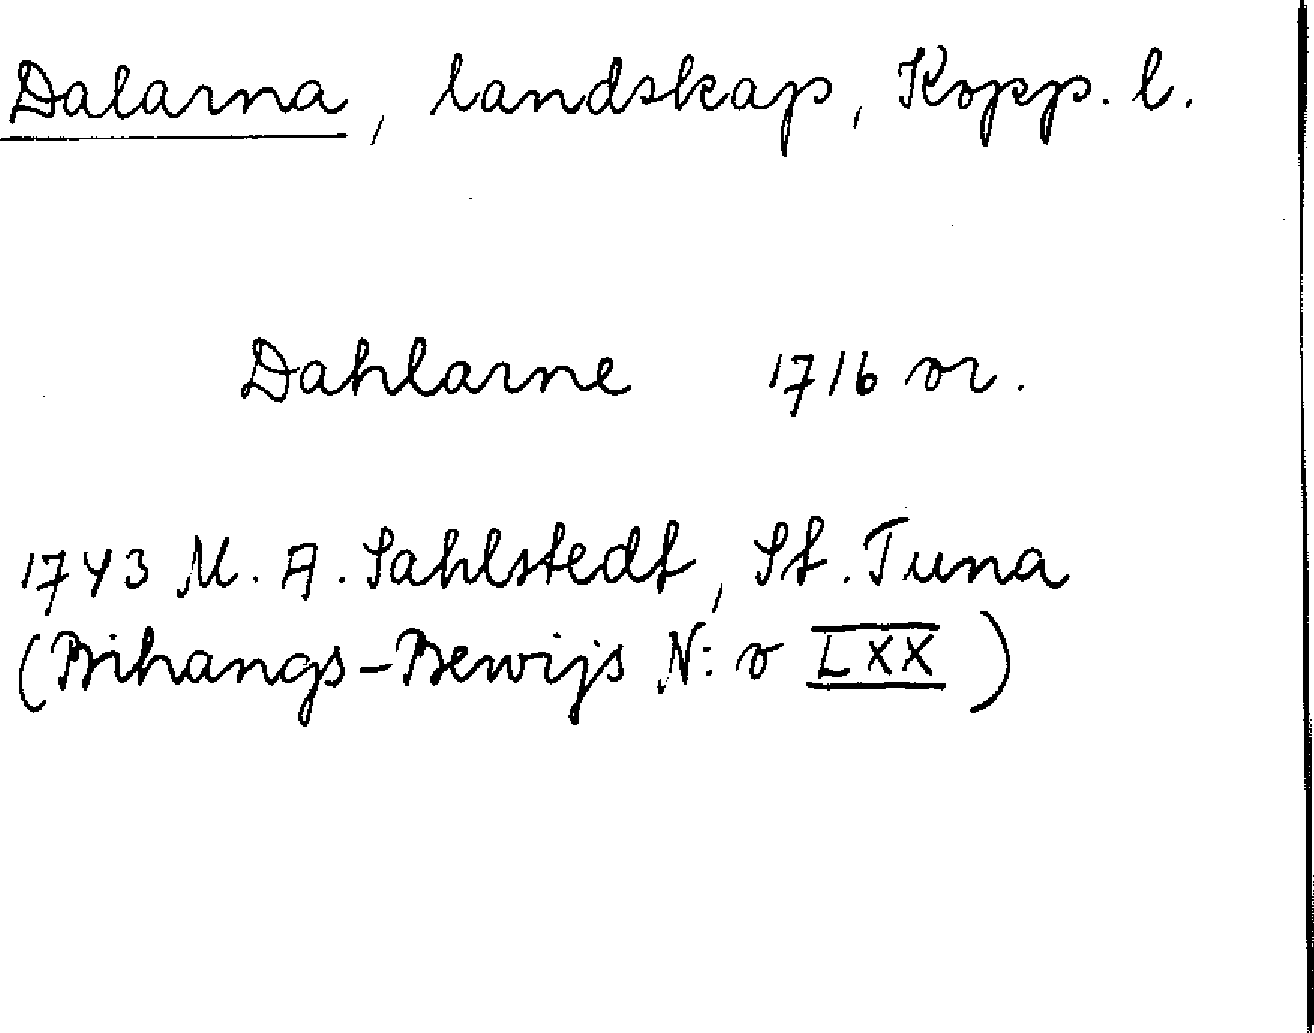 Dalarna, landskap, Kopp. l.
Dahlarne 1716 or.
1743 M. A. Sahlstedt, St. Tuna
(Bihangs-Bewijs N:o LXX)